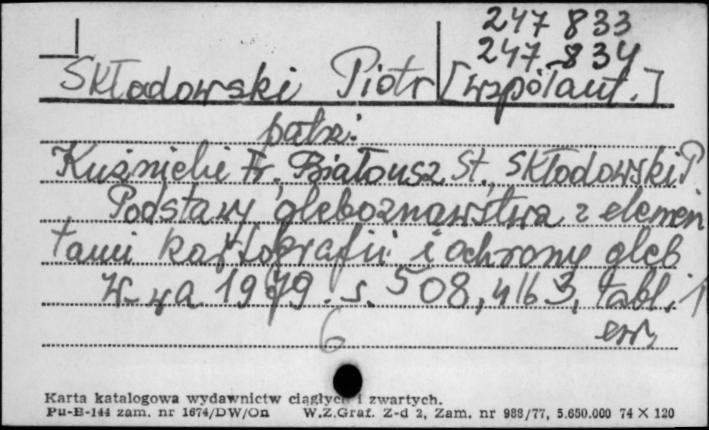 247 833
247 834
Skłodowski Piotr [współaut.]
patrz:
Kuźnicki Fr., Białousz St., Skłodowski P.
Podstawy gleboznawstwa z elemen
tami kartografii i ochrony gleb
W-wa 1979. s. 508, 4163, tabl. 1
err.
6
Karta katalogowa wydawnictw ciągłych i zwartych.
Pu-B-144 zam. nr 1674/DW/On W.Z.Graf. Z-d 2, Zam. nr 988/77, 5.650.000 74 X 120